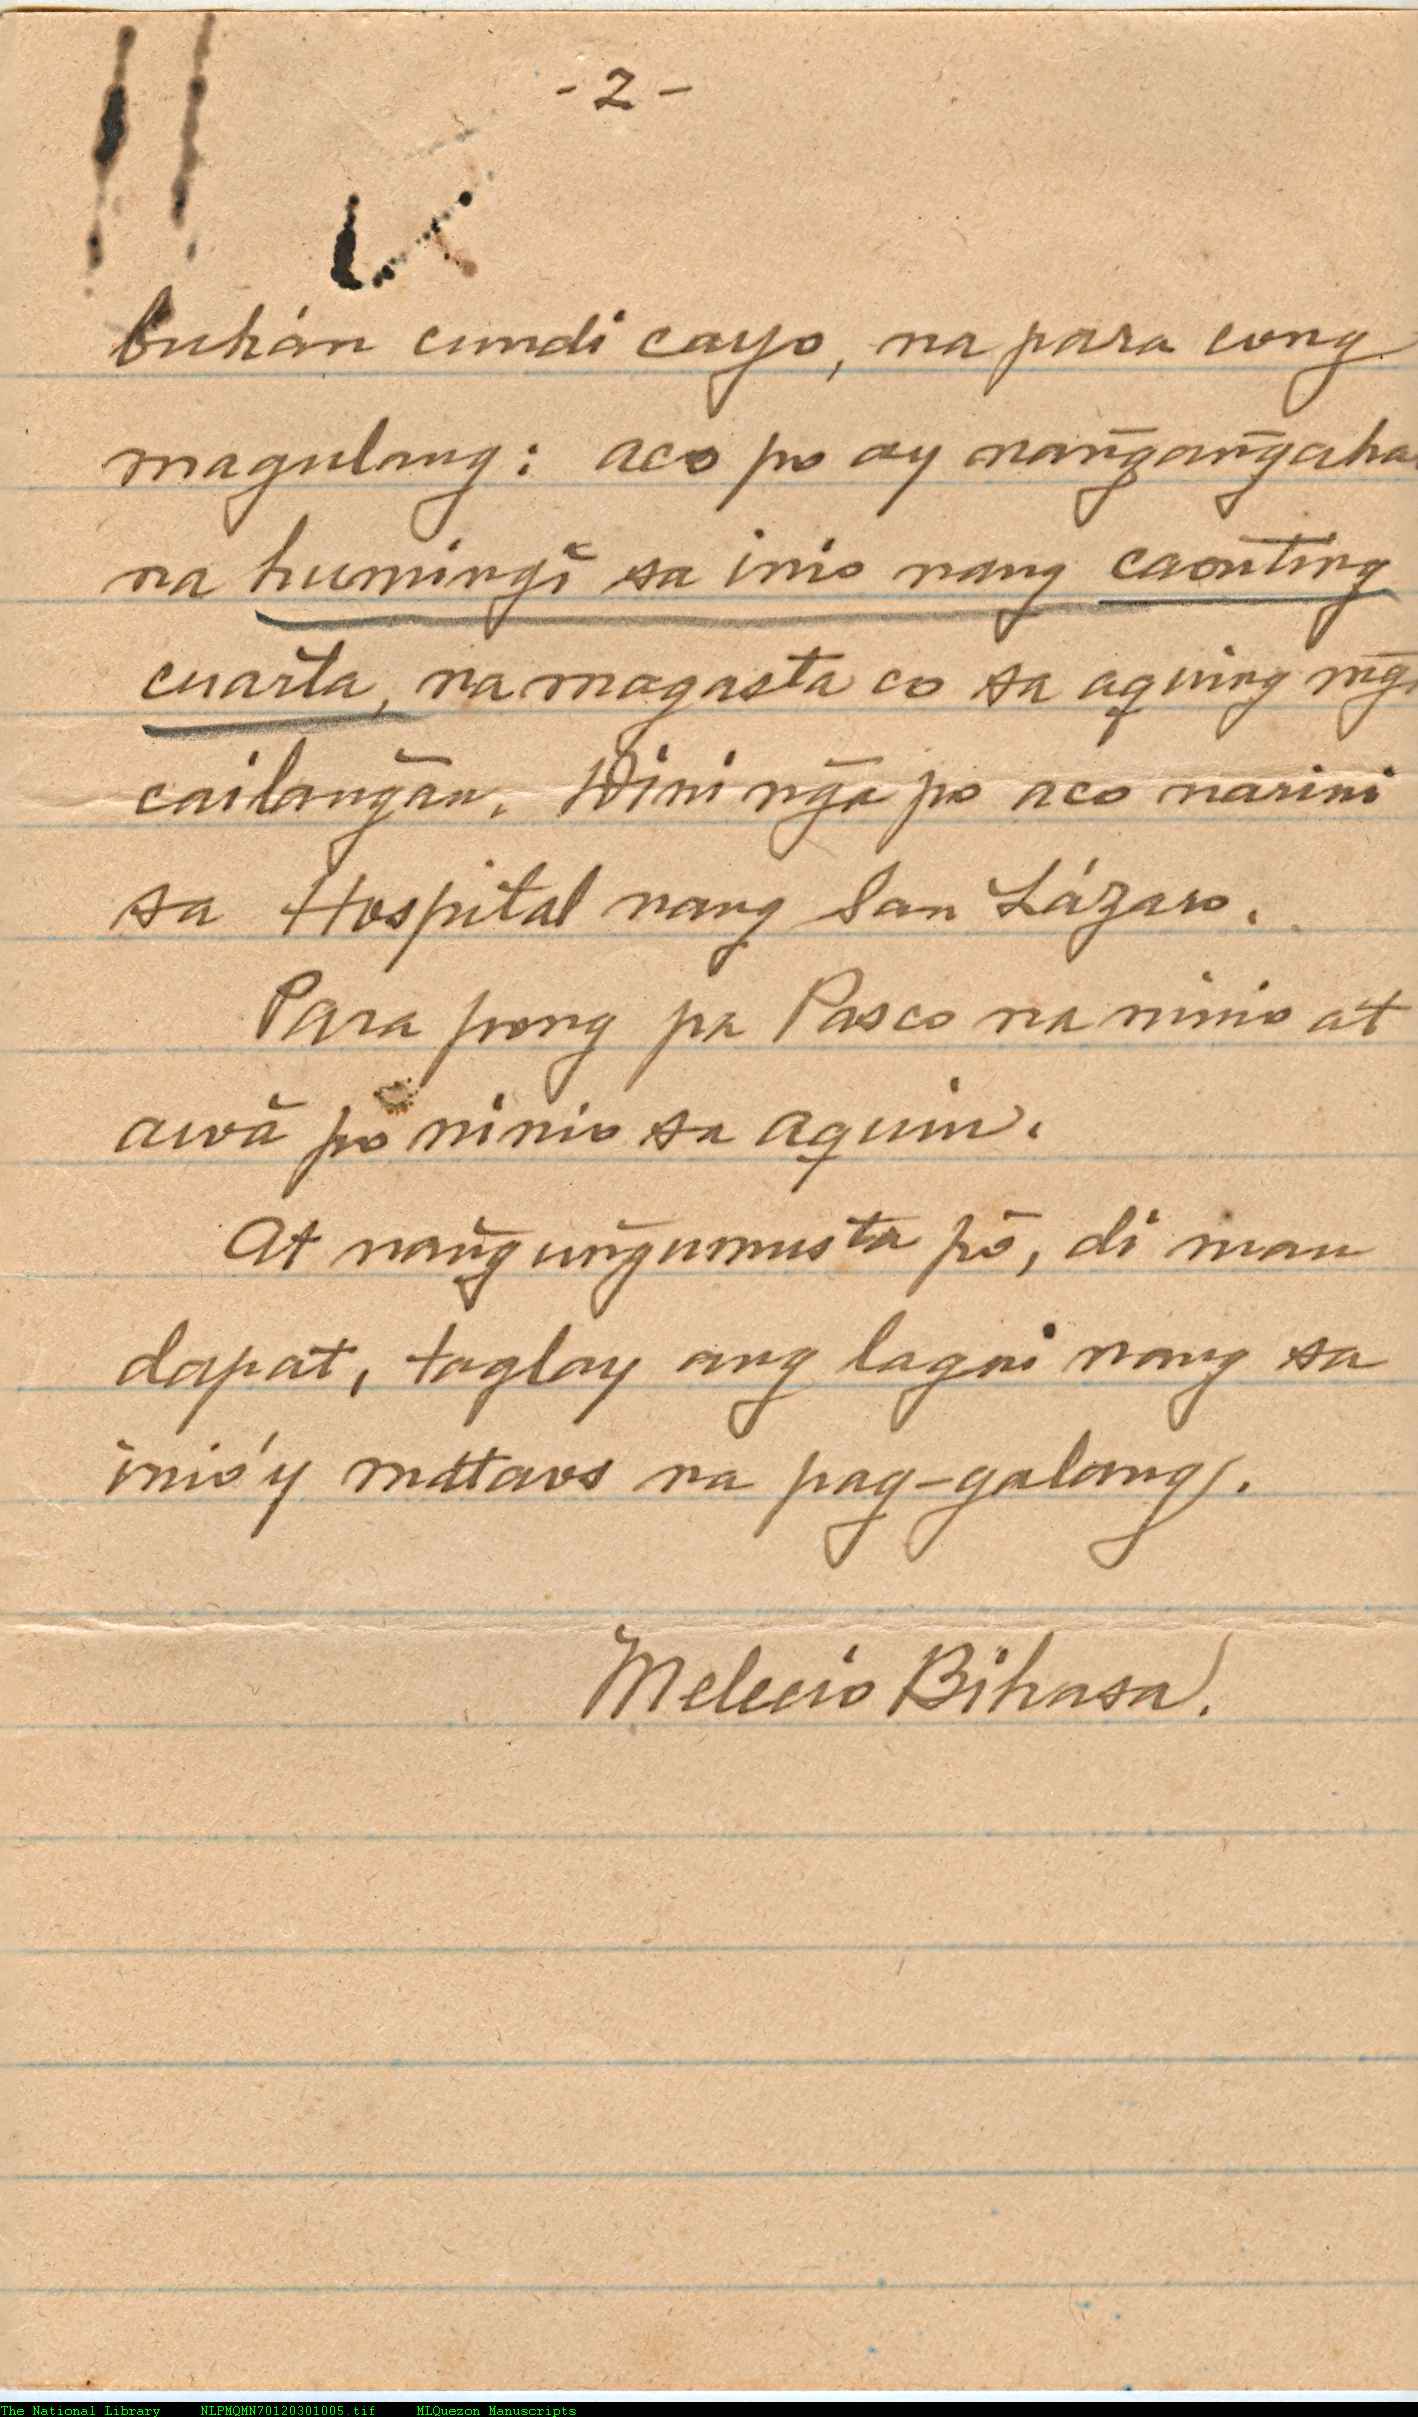 - 2 -
buhán cundi cayo, na para cong
magulang: aco po ay nang̃ang̃aha
na humingĩ sa inio nang caonting
cuarta, na magasta co sa aquing mg̃a
cailang̃an. Dini ng̃a po aco narini
sa Hospital nang San Lázaro.
Para pong pa Pasco na ninio at
awã põ ninio sa aquin.
At nang̃ung̃umusta põ, di man
dapat, taglay ang lagai nang sa
inio'y mataos na pag-galang.
Melecio Bihasa.
The National Library NLPMQMN70120301005.tif MLQuezon Manuscripts